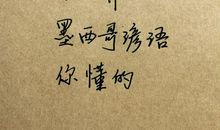 墨西哥谚语
你懂的